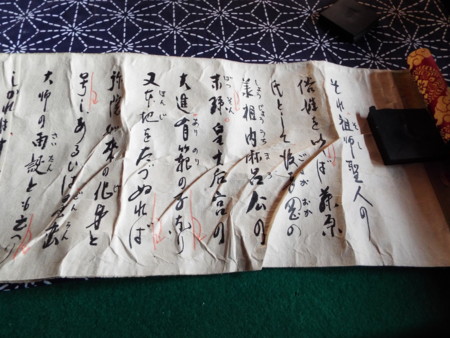 それ祖師聖人の
俗姓をいへば藤原
氏として後長岡の
丞相内麻呂公の
末孫皇太后宮の
大進有範の子なり
又本地をたづぬれば
弥陀如来の化身と
号しあるひは曇鸞
大師の再誕とも云
しかればす